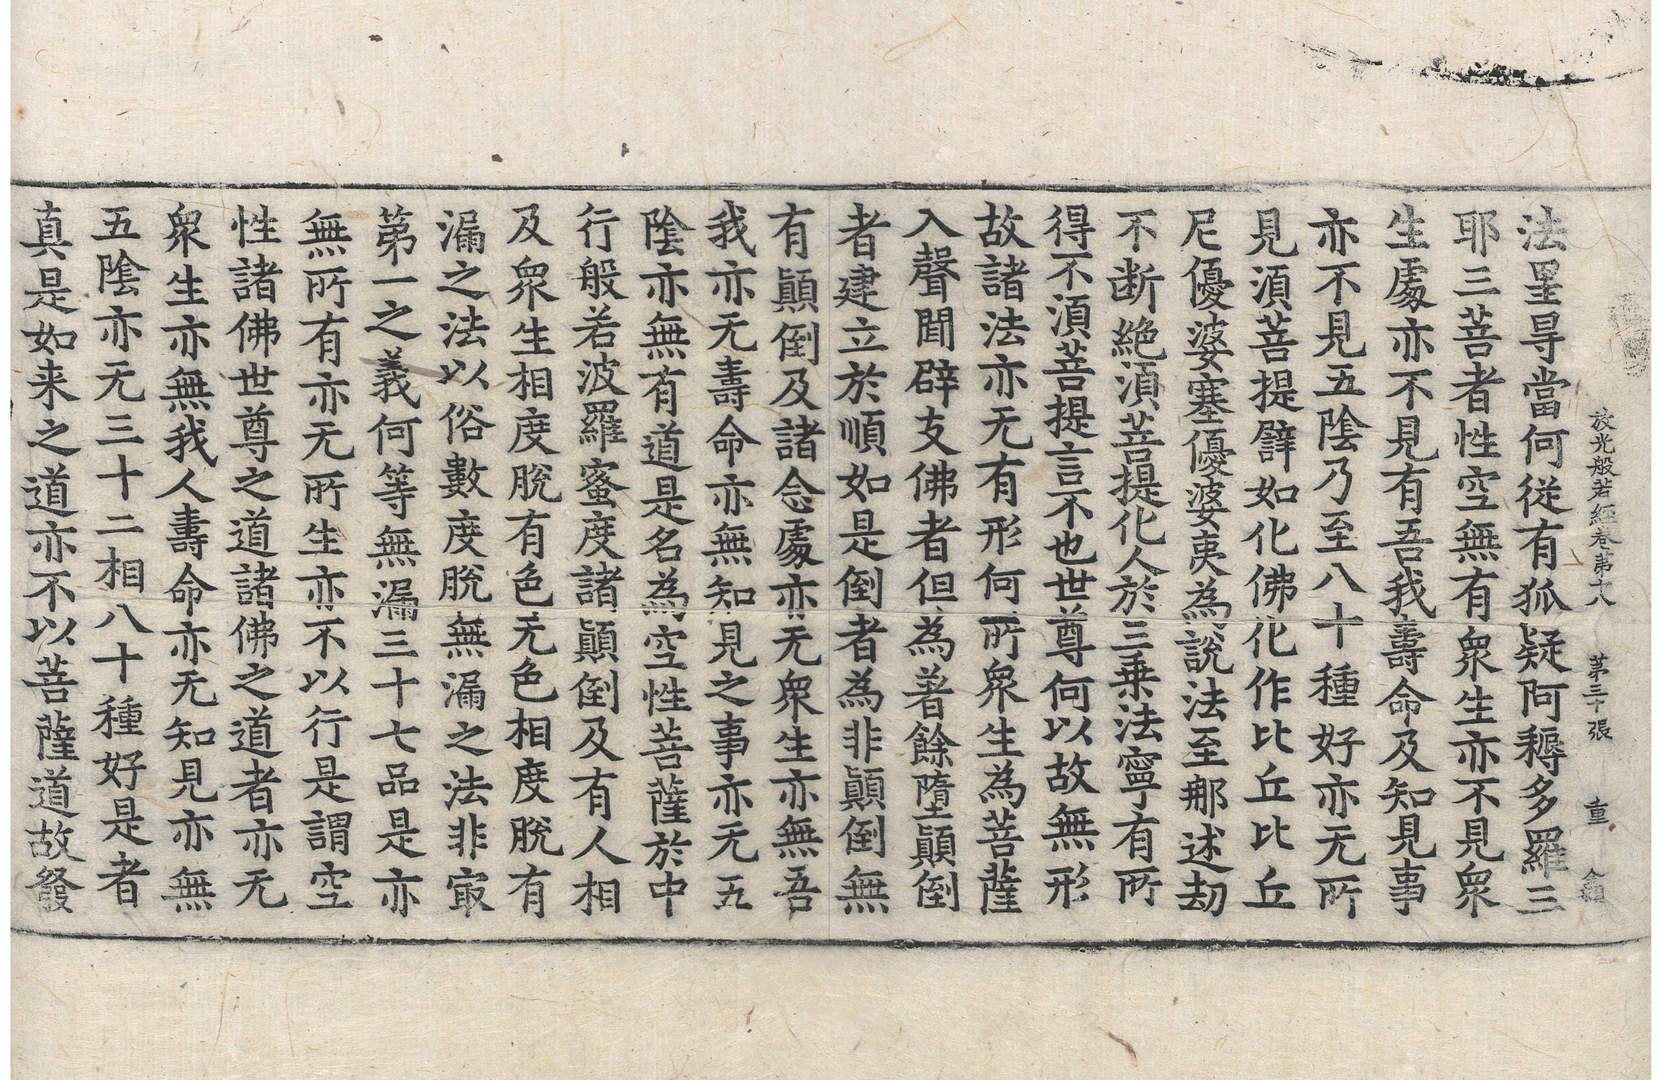 放光般若經卷第十八　第三十張　重　龠
法里㝵當何従有狐疑阿耨多羅三
耶三菩者性空無有衆生亦不見衆
生處亦不見有吾我壽命及知見事
亦不見五陰乃至八十種好亦无所
見湏菩提譬如化佛化作比丘比丘
尼優婆塞優婆夷為說法至那述劫
不断絶湏菩提化人於三乗法寧有所
得不湏菩提言不也世尊何以故無形
故諸法亦无有形何所衆生為菩薩
入聲聞辟支佛者但為著餘墮顚倒
者建立於順如是倒者為非顚倒無
有顚倒及諸念處亦无衆生亦無吾
我亦无壽命亦無知見之事亦无五
陰亦無有道是名為空性菩薩於中
行般若波羅蜜度諸顚倒及有人相
及衆生相度脫有色无色相度脫有
漏之法以俗數度脫無漏之法非㝡
第一之義何等無漏三十七品是亦
無所有亦无所生亦不以行是謂空
性諸佛世尊之道諸佛之道者亦无
衆生亦無我人壽命亦无知見亦無
五陰亦无三十二相八十種好是者
真是如来之道亦不以菩薩道故發